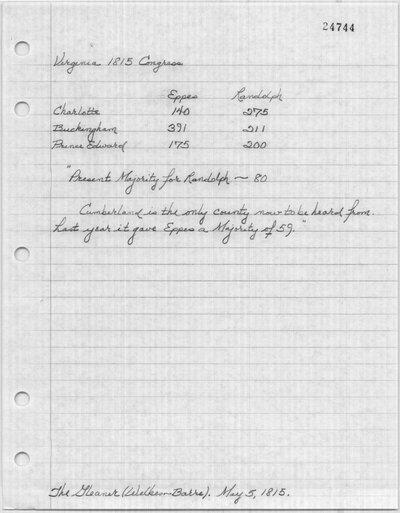 24744
Virginia 1815 Congress
Eppes Randolph
Charlotte 140 275
Buckingham 391 211
Prince Edward 175 200
"Present Majority for Randolph ~ 80
Cumberland is the only county now to be heard from.
Last year it gave Eppes a Majority of 59."
The Gleaner (Wilkes-Barre). May 5, 1815.